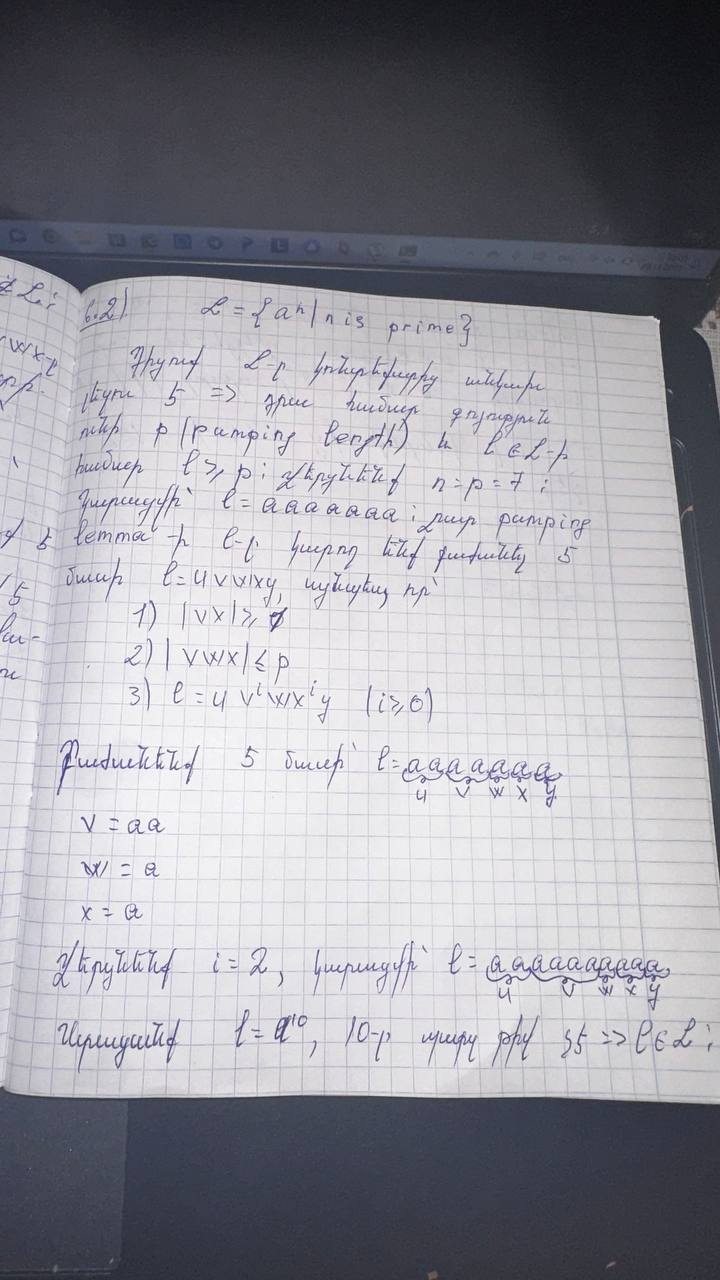 ≠ L:
6.2) L = {aⁿ | n is prime}
Դիցուք L-ը կոնտեքստից անկախ
լեզու է => դրա համար գոյություն
ունի p (pumping length) և l ∈ L-ը
համար l ≥ p: Վերցնենք n = p = 7:
Կստացվի՝ l = aaaaaaa: Ըստ pumping
lemma-ի l-ը կարող ենք բաժանել 5
մասի l = uvwxy, այնպես, որ՝
1) |vx| ≥ 1
2) |vwx| ≤ p
3) l = u vⁱ w xⁱ y (i ≥ 0)
Բաժանենք 5 մասի՝ l = aaaaaaa
u v w x y
v = aa
w = a
x = a
Վերցնենք i = 2, կստացվի՝ l = aaaaaaaaaa
u v w x y
Ստացանք l = a¹⁰, 10-ը պարզ թիվ չէ => l ∈ L: